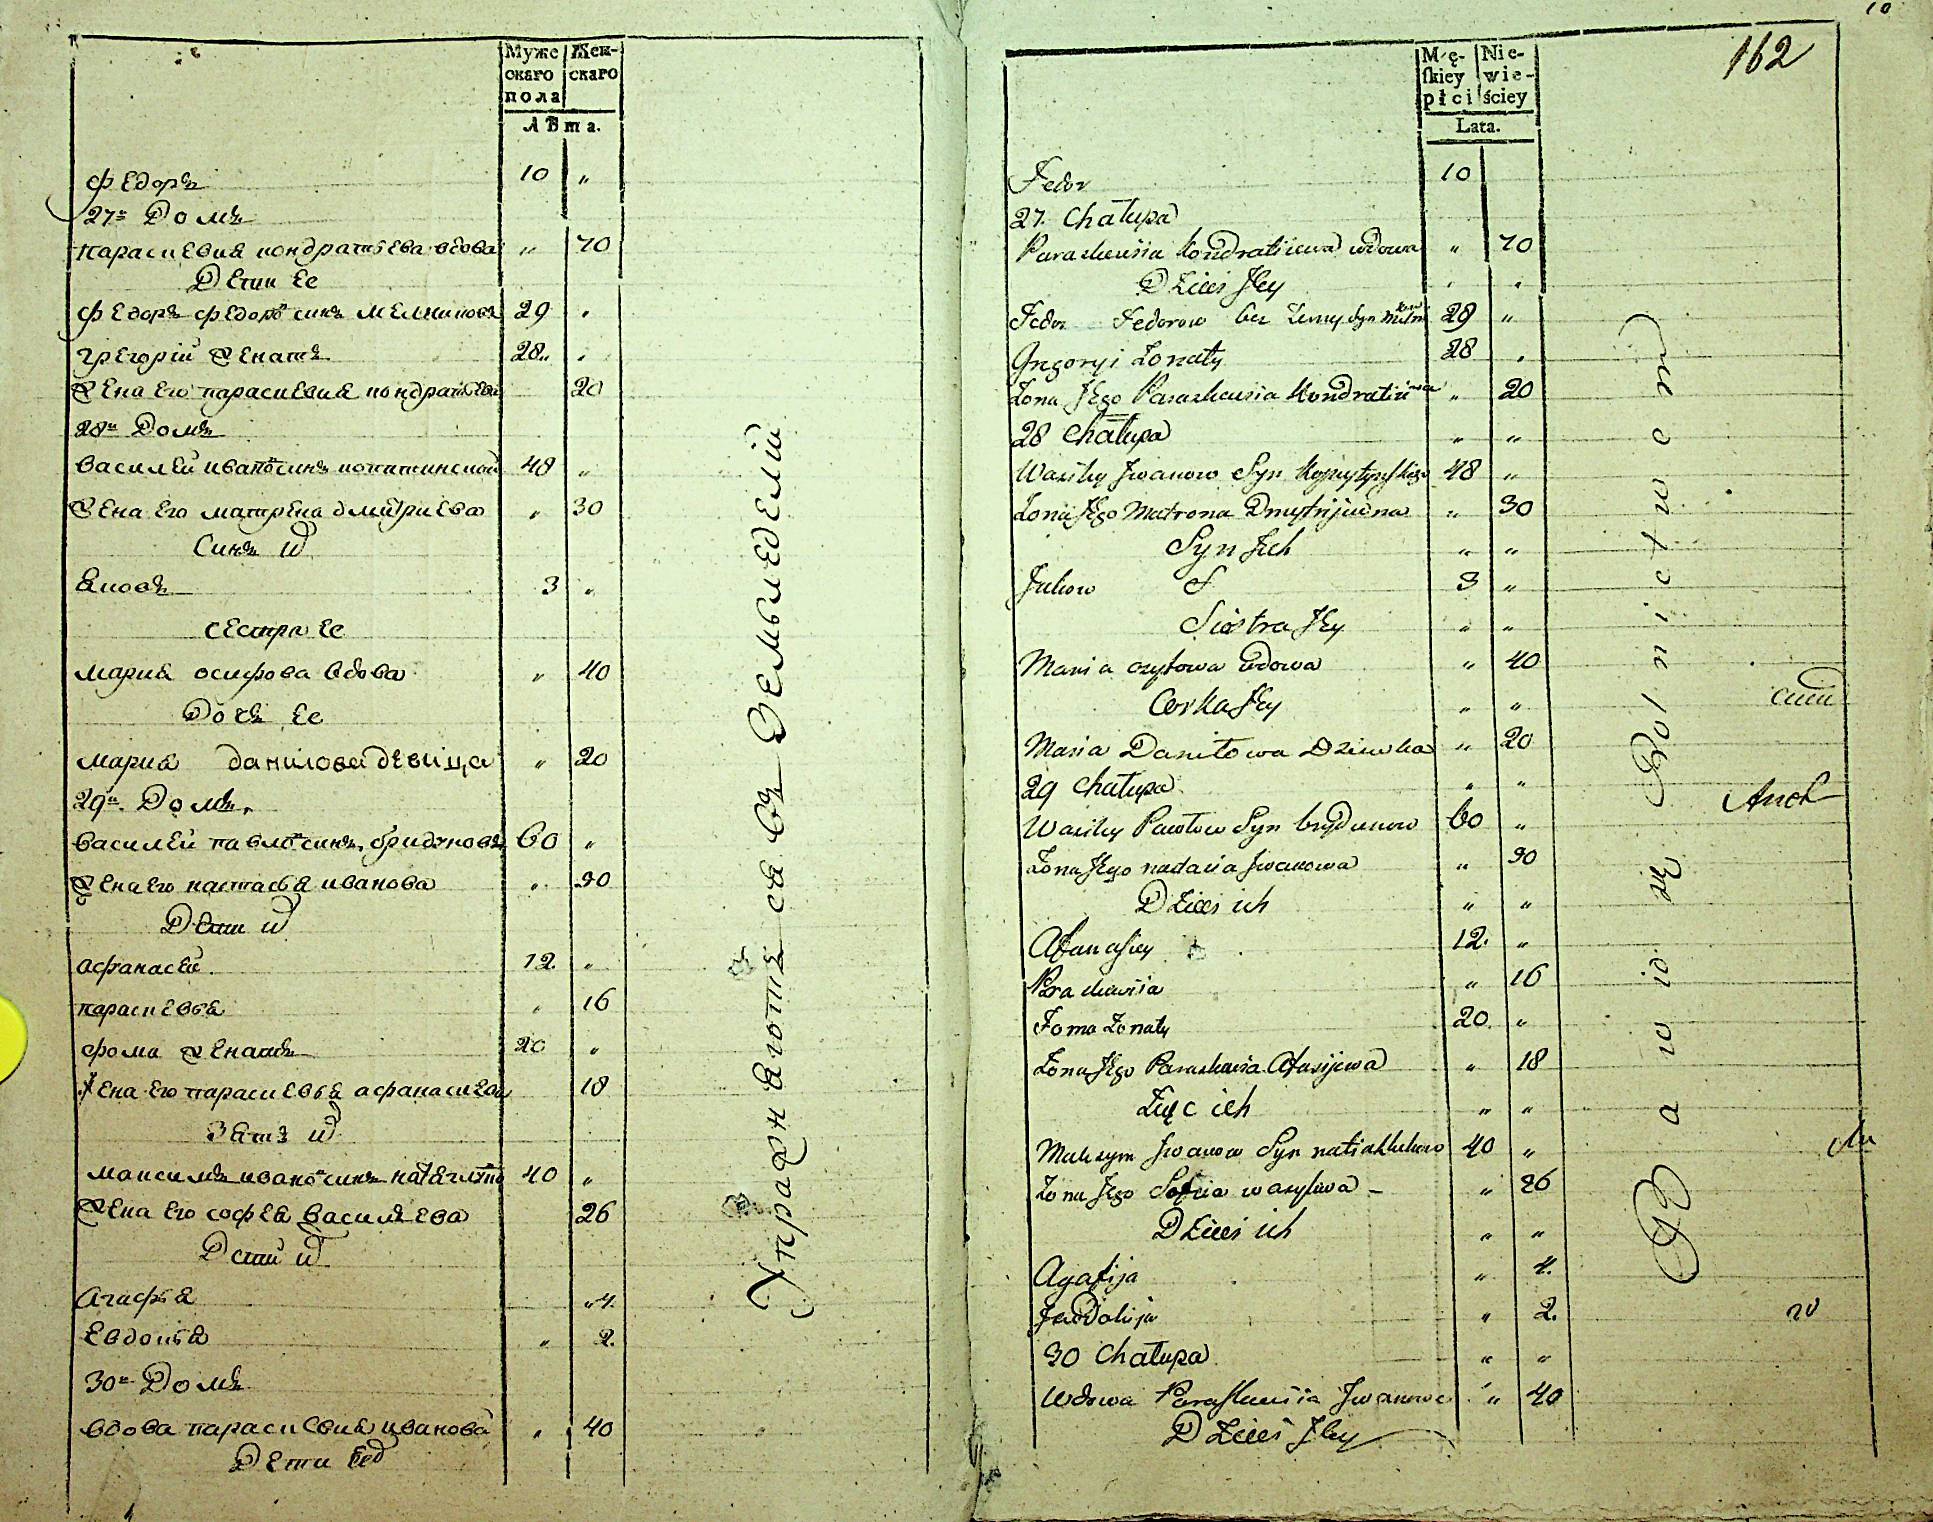 Муже
скаго
пола
Жен-
скаго
Лѣта.
Федоръ 10 „
27й Домъ
параскевия кондратьева вдова „ 70
Дети ее
Федоръ федоровъ синъ мелниковъ 29 „
Грегорій женатъ 28 „
жена его параскевия кондратьева 20
28й Домъ
василей ивановъ синъ копитинской 48 „
жена его матрена дмитриева „ 30
Синъ их
яковъ 3 „
сестра ее
мария осифова вдова „ 40
Дочь ее
мария данилова девица „ 20
29й Домъ
василей павловъ синъ бридуновъ 60 „
жена его настасья иванова „ 30
Дети их
афанасей 12 „
параскевья „ 16
фома женатъ 20 „
жена его параскевья афанасиева 18
Зять их
максимъ ивановъ синъ 40 „
жена его софея василева 26
Дети их
Агафья „ 4
Евдокия „ 2
30й Домъ
вдова параскевия иванова „ 40
Дети ее
Упражняютца въ Земьледелій
10
162
Mę-
skiey
płci
Nie-
wie-
ściey
Lata.
Fedor 10
27. Chałupa
Paraskewia Kondratiiewa wdowa „ 70
Dzieci Jey
Fedor Fedorow bez żeny Syn 29 „
Gregoryi Żonaty 28 „
Żona Jego Paraskewia Kondratiiewa „ 20
28 Chałupa „ „
Wasiley Jwanow Syn Kopystyńskiego 48 „
Żona Jego Matrona Dmytrijewna „ 30
Syn Jich „ „
Jakow 3 „
Siostra Jey „ „
Maria ozyfowa wdowa „ 40
Corka Jey „ „
Maria Daniłowa Dziewka „ 20
29 Chałupa „ „
Wasiley Pawłow Syn brydunow 60 „
Żona Jego nastasia Jwanowa „ 30
Dzieci ich „ „
Afanasiey 12. „
Paraskewia „ 16
Foma Żonaty 20. „
Żona Jego Paraskewia Afasijewa „ 18
Zięć ich „ „
Maksym Jwanow Syn 40 „
Żona Jego Sofia wasylewa – „ 26
Dzieci ich „ „
Agafija „ 4.
Jewdokija „ 2.
30 Chałupa „ „
Wdowa Paraskewia Jwanowa „ 40
Dzieci Jey
Bawią się Rolnictwem